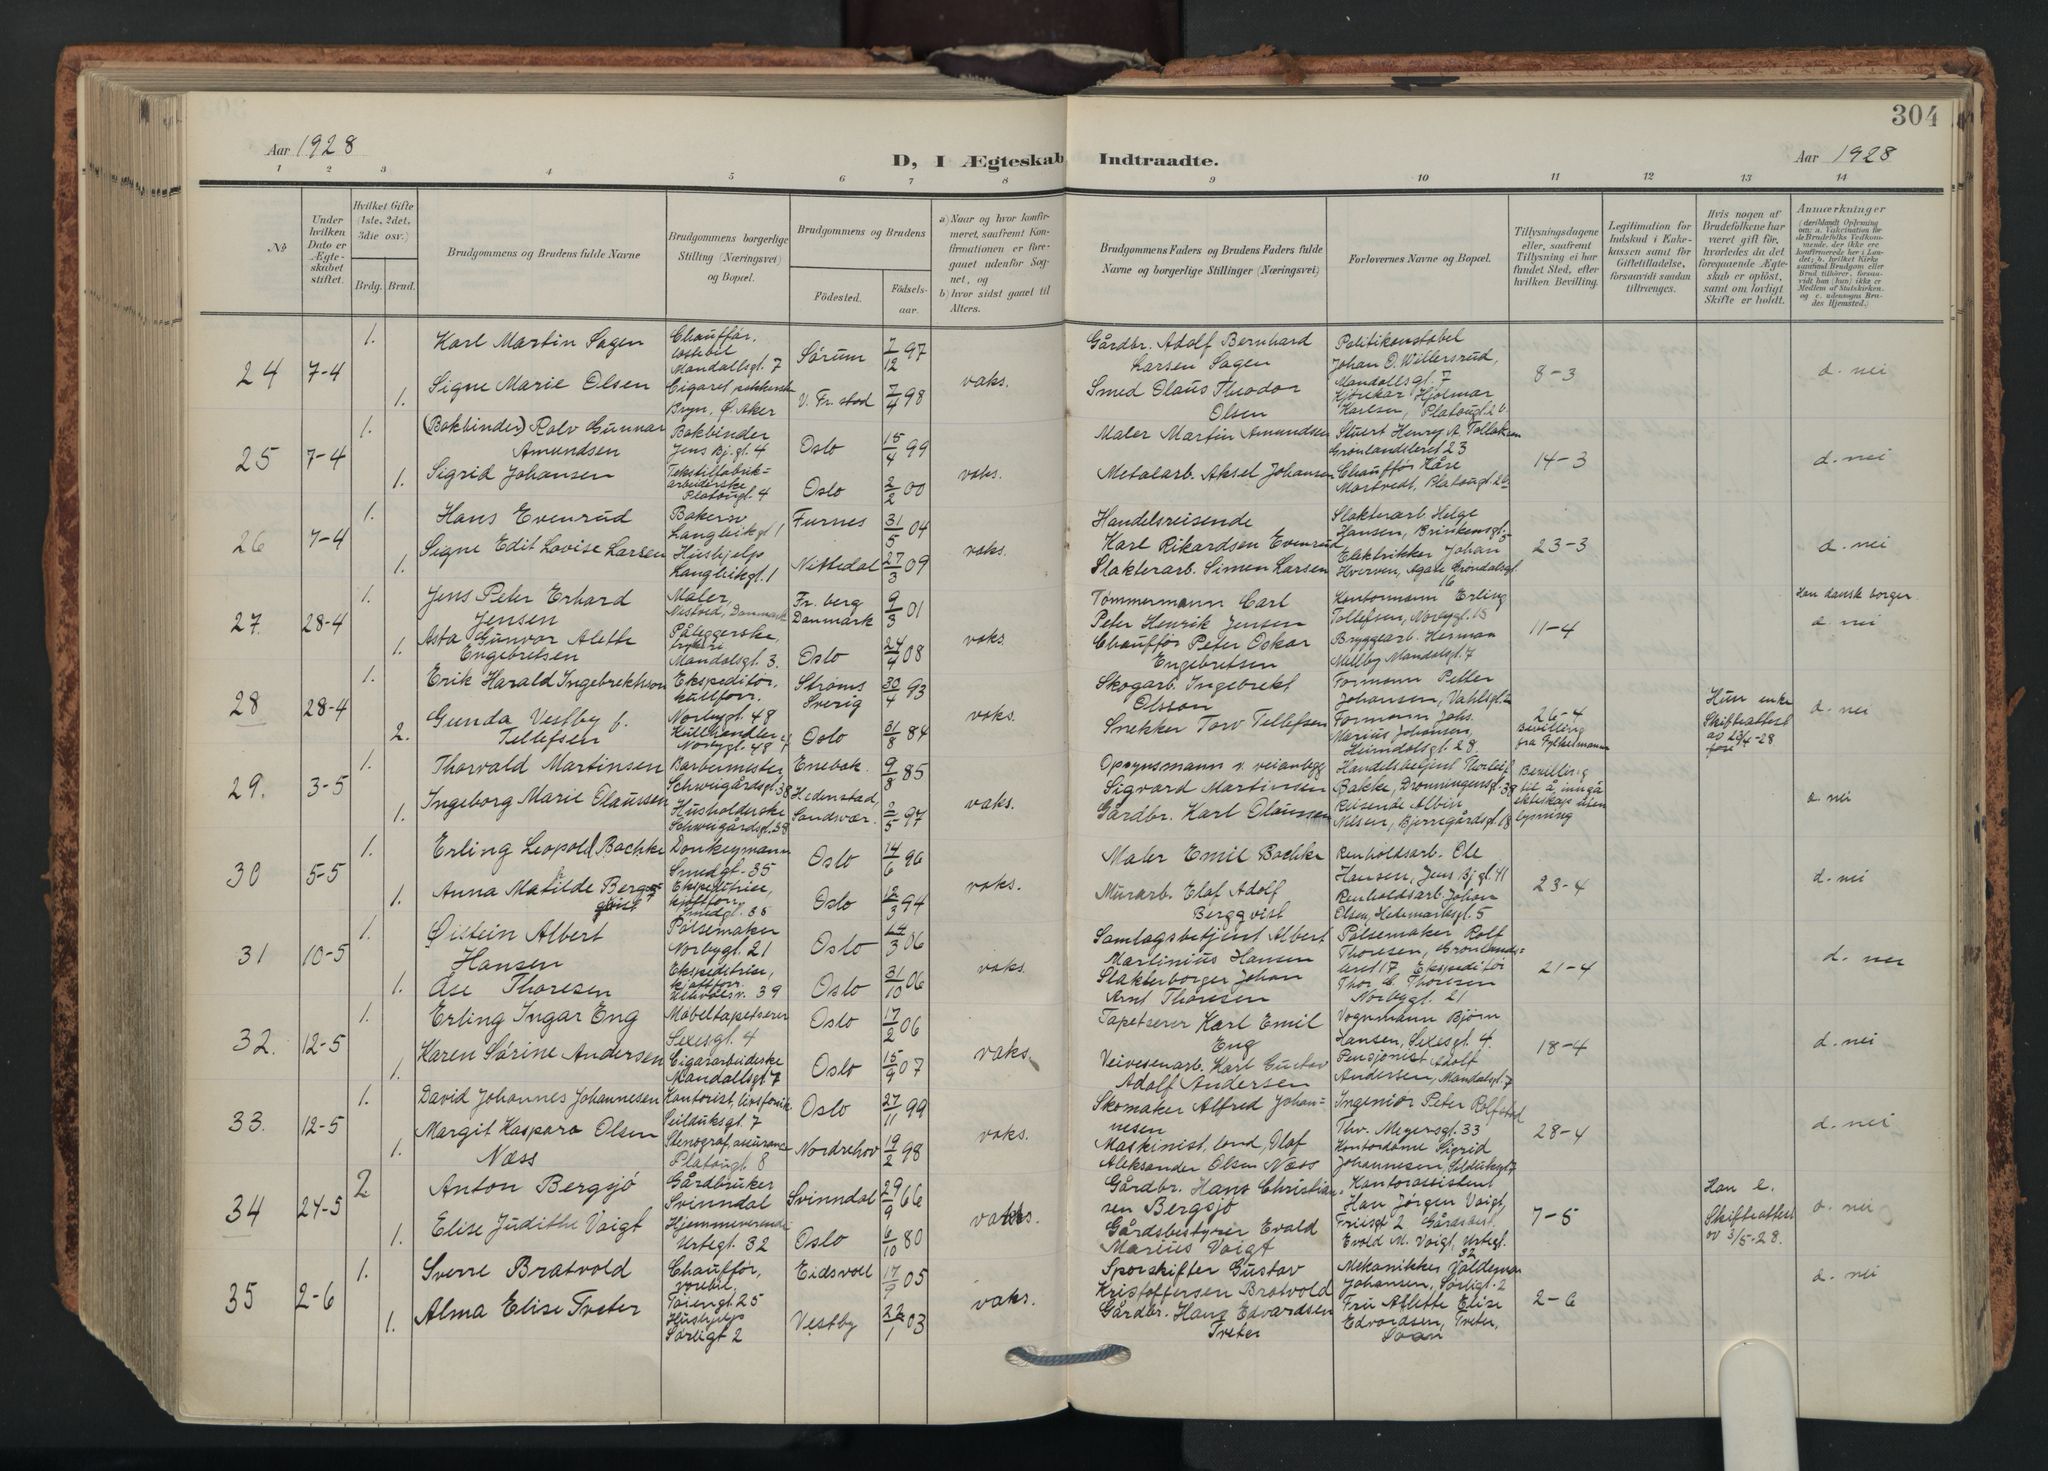 304
Aar 1928
D, I Ægteskab Indtraadte.
Aar 1928
1 2 3 4 5 6 7 8 9 10 11 12 13 14
№
Under hvilken Dato er Ægteskabet stiftet.
Hvilket Gifte (1ste, 2det, 3die osv.)
Brdg. Brud.
Brudgommens og Brudens fulde Navne
Brudgommens borgerlige Stilling (Næringsvei) og Bopæl.
Brudgommens og Brudens
Födested.
Födsels-aar.
a) Naar og hvor konfirmeret, saafremt Konfirmationen er foregaaet udenfor Sognet, og
b) hvor sidst gaaet til Alters.
Brudgommens Faders og Brudens Faders fulde Navne og borgerlige Stillinger (Næringsvei)
Forlovernes Navne og Bopæl.
Tillysningsdagene eller, saafremt Tillysning ei har fundet Sted, efter hvilken Bevilling.
Legitimation for Indskud i Enkekassen samt for Giftetilladelse, forsaavidt saadan tiltrænges.
Hvis nogen af Brudefolkene har været gift før, hvorledes da det foregaaende Ægteskab er opløst, samt om lovligt Skifte er holdt.
Anmærkninger
24 7-4
1. Karl Martin Sagen Chauffør, losjebil Mandallsgt. 7 Sørum 7/12 97
1. Signe Marie Olsen Bryn, Ø. Aker V. Fr.stad 7/4 98
vaks.
Gårdbr. Adolf Bernhard Larsen Sagen
Smed Olaus Theodor Olsen
Politikonstabel Johan O. Willersrud, Mandallsgt. 7
Hjalmar Karlsen, Platougt. 2 b
8-3 d. nei
25 7-4
1. (Bokbinder) Rolv Gunnar Amundsen Bokbinder Jens Bj.gt. 4 Oslo 15/4 99
1. Sigrid Johansen Tekstilfabrik-arbeiderske Platougt. 4 Oslo 2/2 00
vaks.
Maler Martin Amundsen
Metalarb. Aksel Johansen
Stuert Henry A. Grønlandsleret 23
Chauffør Kåre Platougt. 26
14-3 d. nei
26 7-4
1. Hans Evenrud Bakersv. Langleikgt. 1 Furnes 31/5 04
1. Signe Edit Lovise Larsen Hushjelp Langleikgt. 1 Nittedal 27/3 09
vaks.
Handelsreisende Karl Rikardsen Evenrud
Slakterarb. Simen Larsen
Slakterarb. Helge Hansen, Brinkensgt. 5
Elektrikker Johan Hverven, Agate Grøndalsgt. 16
23-3 d. nei
27. 28-4
1. Jens Peter Erhard Jensen Maler, Nestved, Danmark Fr.berg Danmark 9/3 01
1. Asta Gunvor Alethe Engebretsen Påleggerske, trykeri Mandalsgt. 3. Oslo 24/4 08
vaks.
Tømmermann Carl Peter Henrik Jensen
Chauffør Peter Oskar Engebretsen
Kontormann Erling Tollefsen, Norbygt. 15
Bryggearb. Herman Millby Mandalsgt. 7
11-4
Han dansk borger
d. nei
28 28-4
1. Erik Harald Ingebrektsson Ekspeditør, kullforr. Norbygt. 48 Strøms Sverig 30/4 93
2. Gunda Vestby f. Tellefsen Kullhandler Norbygt. 48 Oslo 31/8 84
vaks.
Skogarb. Ingebrekt Olsson
Snekker Torv Tellefsen
Formann Petter Johansen, Vahlsgt. 2
Formann Johs. Marius Johansen, Heimdalsgt. 28.
26-4 Bevilling fra Fylkesmann
Hun enke Skifteattest av 23/4-28
d. nei
29. 3-5
1. Thorvald Martinsen Barbermester Schweigårdsgt. 38 Enebak. 9/8 85
1. Ingeborg Marie Olaussen Husholderske Schweigårdsgt. 38 Hedenstad, Sandsvær. 2/5 97
vaks.
Opsynsmann v. veianlegg Sigvard Martinsen
Gårdbr. Karl Olaussen
Handelsbetjent Thorleif Bakke, Dronningensgt. 38
Reisende Albin Nilsen, Bjerregårdsgt. 18
Bevilling til å inngå ekteskap uten lysning
d. nei
30 5-5
1. Erling Leopold Bachke Donkeymann Smedgt. 35 Oslo 14/6 96
1. Anna Matilde Bergqvist Ekspeditrise, kjøttforr. Smedgt. 35 Oslo 12/3 94
vaks.
Maler Emil Bachke
Murarb. Elof Adolf Bergqvist
Renholdsarb. Ole Hansen, Jens Bj.gt. 41
Renholdsarb. Johan Olsen, Hedemarksgt. 5
23-4 d. nei
31 10-5
1. Øistein Albert Hansen Pølsemaker Norbygt. 21 Oslo 24/3 06
1. Åse Thoresen Ekspeditrise, kjøttforr. 39 Oslo 31/10 06
vaks.
Samlagsbetjent Albert Martinius Hansen
Slakterborger Johan Arnt Thoresen
Pølsemaker Rolf Thoresen, Grønlands-leret 17
Ekspeditør Thor C. Thoresen Norbygt. 21
21-4 d. nei
32. 12-5
1. Erling Ingar Eng Møbeltapetserer Sexesgt. 4 Oslo 17/2 06
1. Karen Sørine Andersen Cigararbeiderske Mandallsgt. 7 Oslo 15/9 07
vaks.
Tapetserer Karl Emil Eng
Veivesenarb. Karl Gustav Adolf Andersen
Vognmann Bjørn Hansen, Sexesgt. 4.
Pensjonist Adolf Andersen, Mandalsgt. 7
18-4 d. nei
33. 12-5
1. David Johannes Johannesen Kontorist, Seilduksgt. 7 Oslo 27/11 99
1. Margit Kaspara Olsen Næss Stenograf, assuranse Platougt. 8 Nordrehov 19/2 98
vaks.
Skomaker Alfred Johan-nesen
Maskinist, Olaf Aleksander Olsen Næss
Ingeniør Peter Rolfstad Thv. Meyersgt. 33
Kontordame Sigrid Johannesen, Seilduksgt. 7
28-4 d. nei
34 24-5
2 Anton Bergsjø Gårdbruker Svinndal Svinndal 29/9 66
1. Elise Judithe Voigt Hjemmeværende Urtegt. 32 Oslo 6/10 80
vaks.
Gårdbr. Hans Christian-sen Bergsjø
Gårdsbestyrer Evald Marius Voigt
Kontorassistent Han Jørgen Voigt, Friisgt 2
Gårdsbest. Evald M. Voigt, Urtegt. 32
7-5
Han e. Skifteattest av 3/5-28.
d. nei
35 2-6
1. Sverre Bratvold Chauffør, Tøiengt. 25 Eidsvoll 17/7 05
1. Alma Elise Tveter Hushjelp Sørligt 2 Vestby 22/1 03
vaks.
Sporskifter Gustav Kristoffersen Bratvold
Gårdbr. Hans Edvardsen Tveter
Mekanikker Valdemar Johansen, Sørligt. 2
Fru Elise Edvardsen, Tveter, Soon
2-6 d. nei